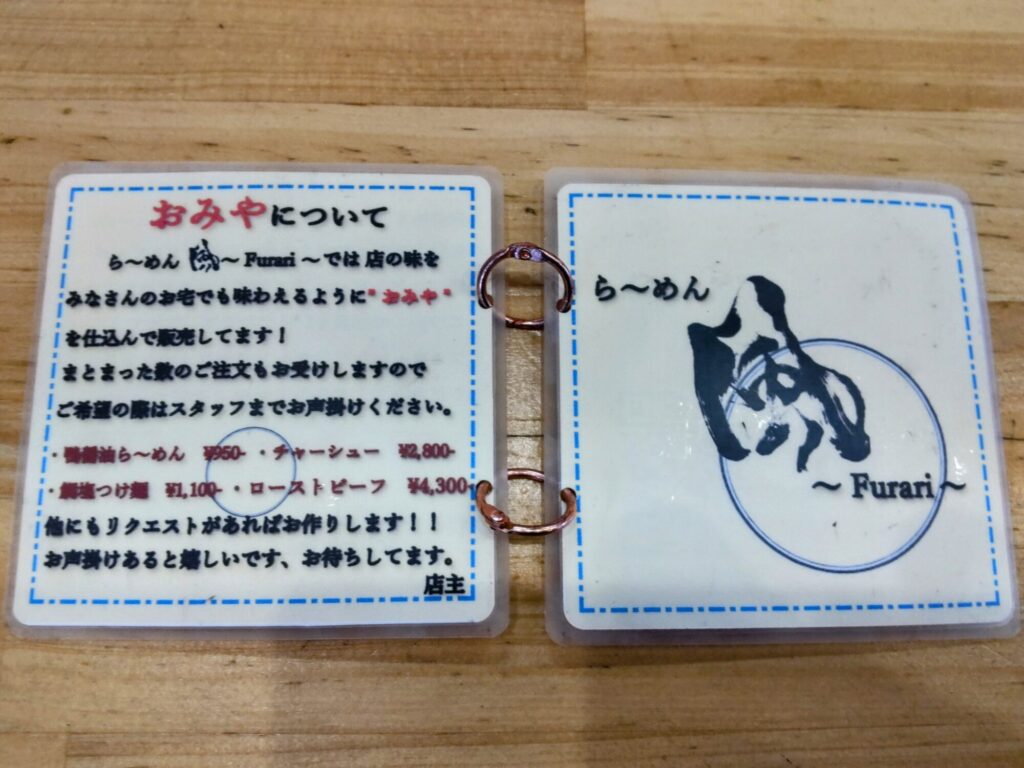 おみやについて
ら～めん 風～ Furari ～では 店の味を
みなさんのお宅でも味わえるように"おみや"
を仕込んで販売してます！
まとまった数のご注文もお受けしますので
ご希望の際はスタッフまでお声掛けください。
・鴨醤油ら～めん ¥950- ・チャーシュー ¥2,800-
・鯛塩つけ麺 ¥1,100- ・ローストビーフ ¥4,300-
他にもリクエストがあればお作りします！！
お声掛けあると嬉しいです、お待ちしてます。
店主
ら～めん
風
～ Furari ～